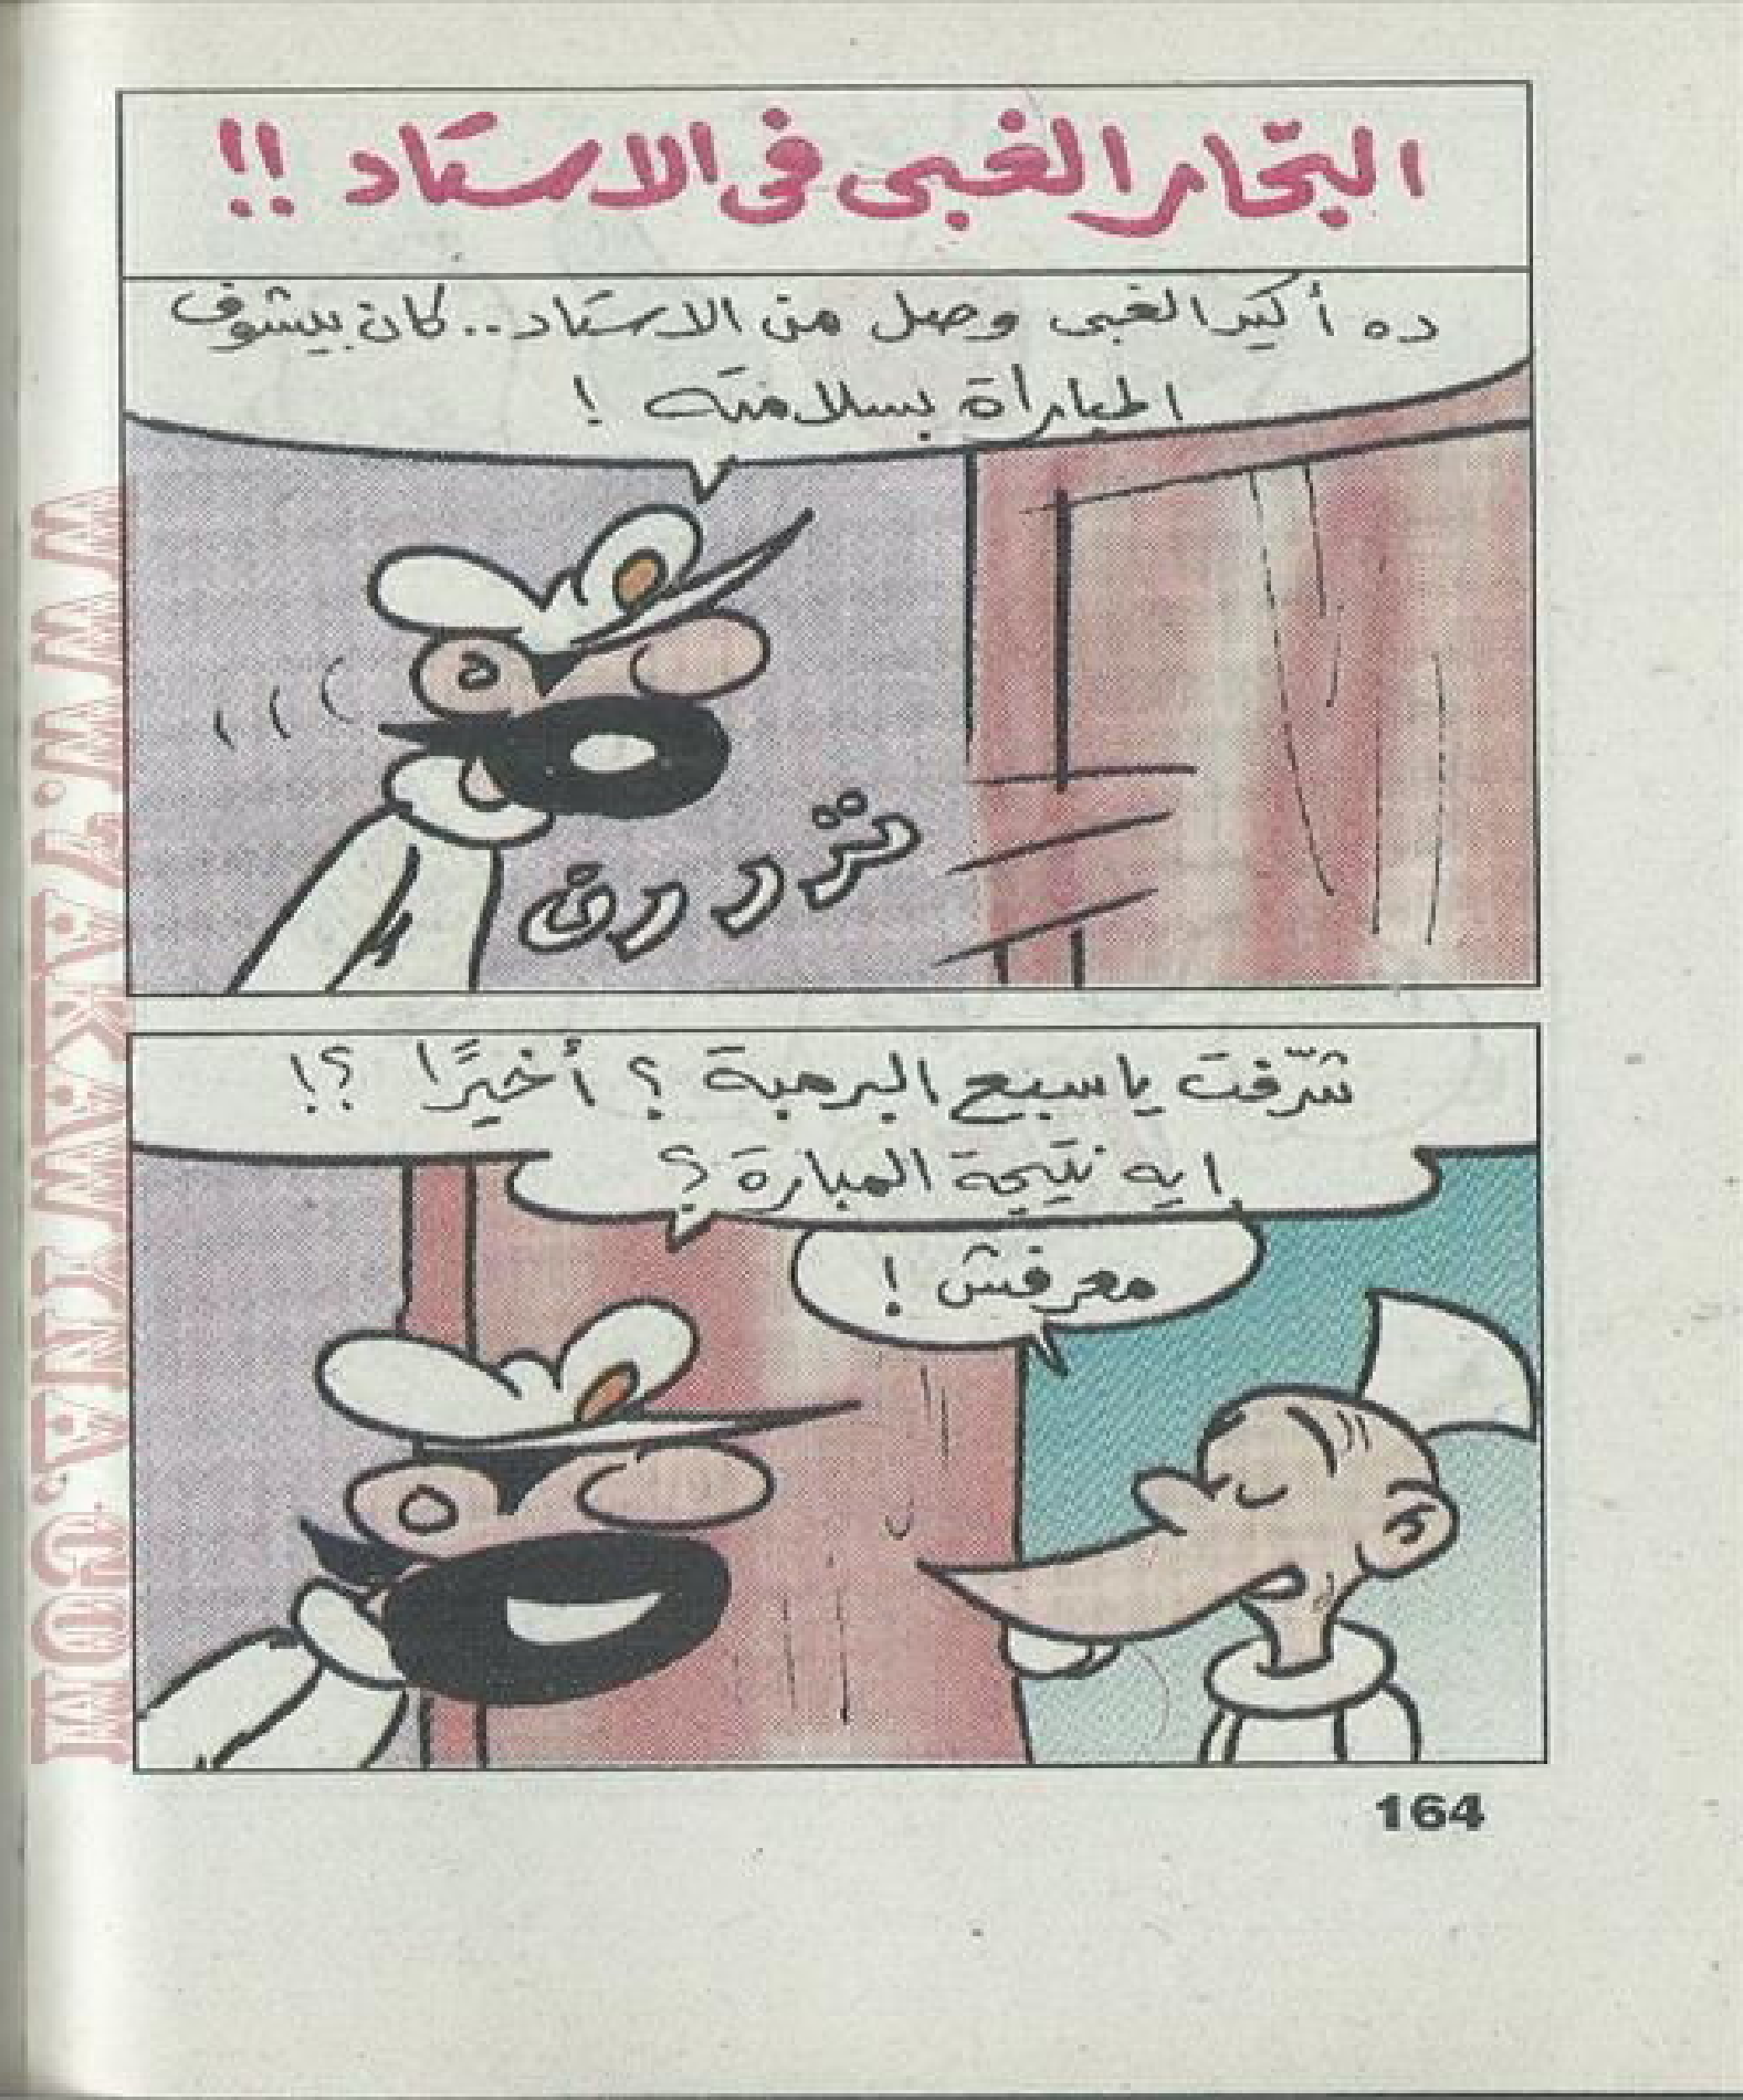 البحار الغبى فى الاستاد !!
ده أكيد الغبى وصل من الاستاد.. كان بيشوف
المباراة بسلامته !
تررررن
شرّفت يا سبع البرمبة ؟ أخيرًا ؟!
ايه نتيجة المبارة ؟
معرفش !
164
WWW.7AKAWINA.COM